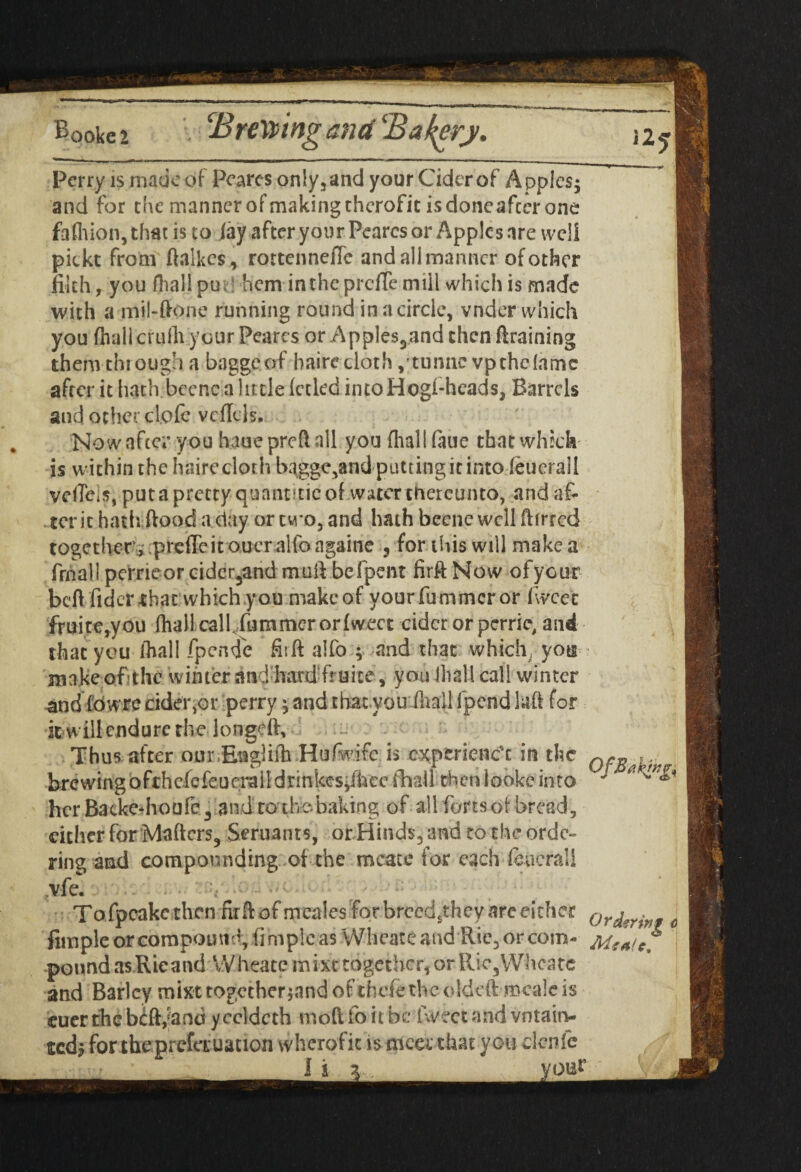 Booke 2 Brewing and Bakery. 125
Perry is made of Peares only, and your Cider of Apples;
and for the manner of making therof it is done after one
faſhion, that is to ſay after your Peares or Apples are well
pickt from ſtalkes, rottenneſſe and all manner of other
filth, you ſhall put hem in the preſſe mill which is made
with a mil-ſtone running round in a circle, vnder which
you ſhall cruſh your Peares or Apples, and then ſtraining
them through a bagge of haire cloth, tunne vp the ſame
after it hath beene a little ſetled into Hogſ-heads, Barrels
and other cloſe veſſels.
Now after you haue preſt all you ſhall ſaue that which
is within the haire cloth bagge, and putting it into ſeuerall
veſſels, put a pretty quantitie of water thereunto, and af-
ter it hath ſtood a day or two, and hath beene well ſtirred
together, preſſe it ouer alſo againe, for this will make a
ſmall perrie or cider, and muſt be ſpent firſt Now of your
beſt ſider that which you make of your ſummer or ſweet
fruite, you ſhall call ſummer or ſweet cider or perrie, and
that you ſhall ſpende firſt alſo; and that which you
make of the winter and hard fruite, you ſhall call winter
and ſowre cider, or perry; and that you ſhall ſpend laſt for
it will endure the longeſt,
Thus after our Engliſh Huſwife is experienc't in the
brewing of theſe ſeuerall drinkes, ſhee ſhall then looke into
Of Baking,
her Backe-houſe, and to the baking of all ſorts of bread,
either for Maſters, Seruants, or Hinds, and to the orde-
ring and compounding of the meate for each ſeuerall
vſe.
To ſpeake then firſt of meales for breed, they are either
Ordering o
ſimple or compound, ſimple as Wheate and Rie, or com-
Meale,
pound as Rie and Wheate mixt together, or Rie, Wheate
and Barley mixt together; and of theſe the oldeſt meale is
euer the beſt, and yeeldeth moſt ſo it be ſweet and vntain-
ted; for the preſeruation wherof it is meet that you clenſe
I i 3 your